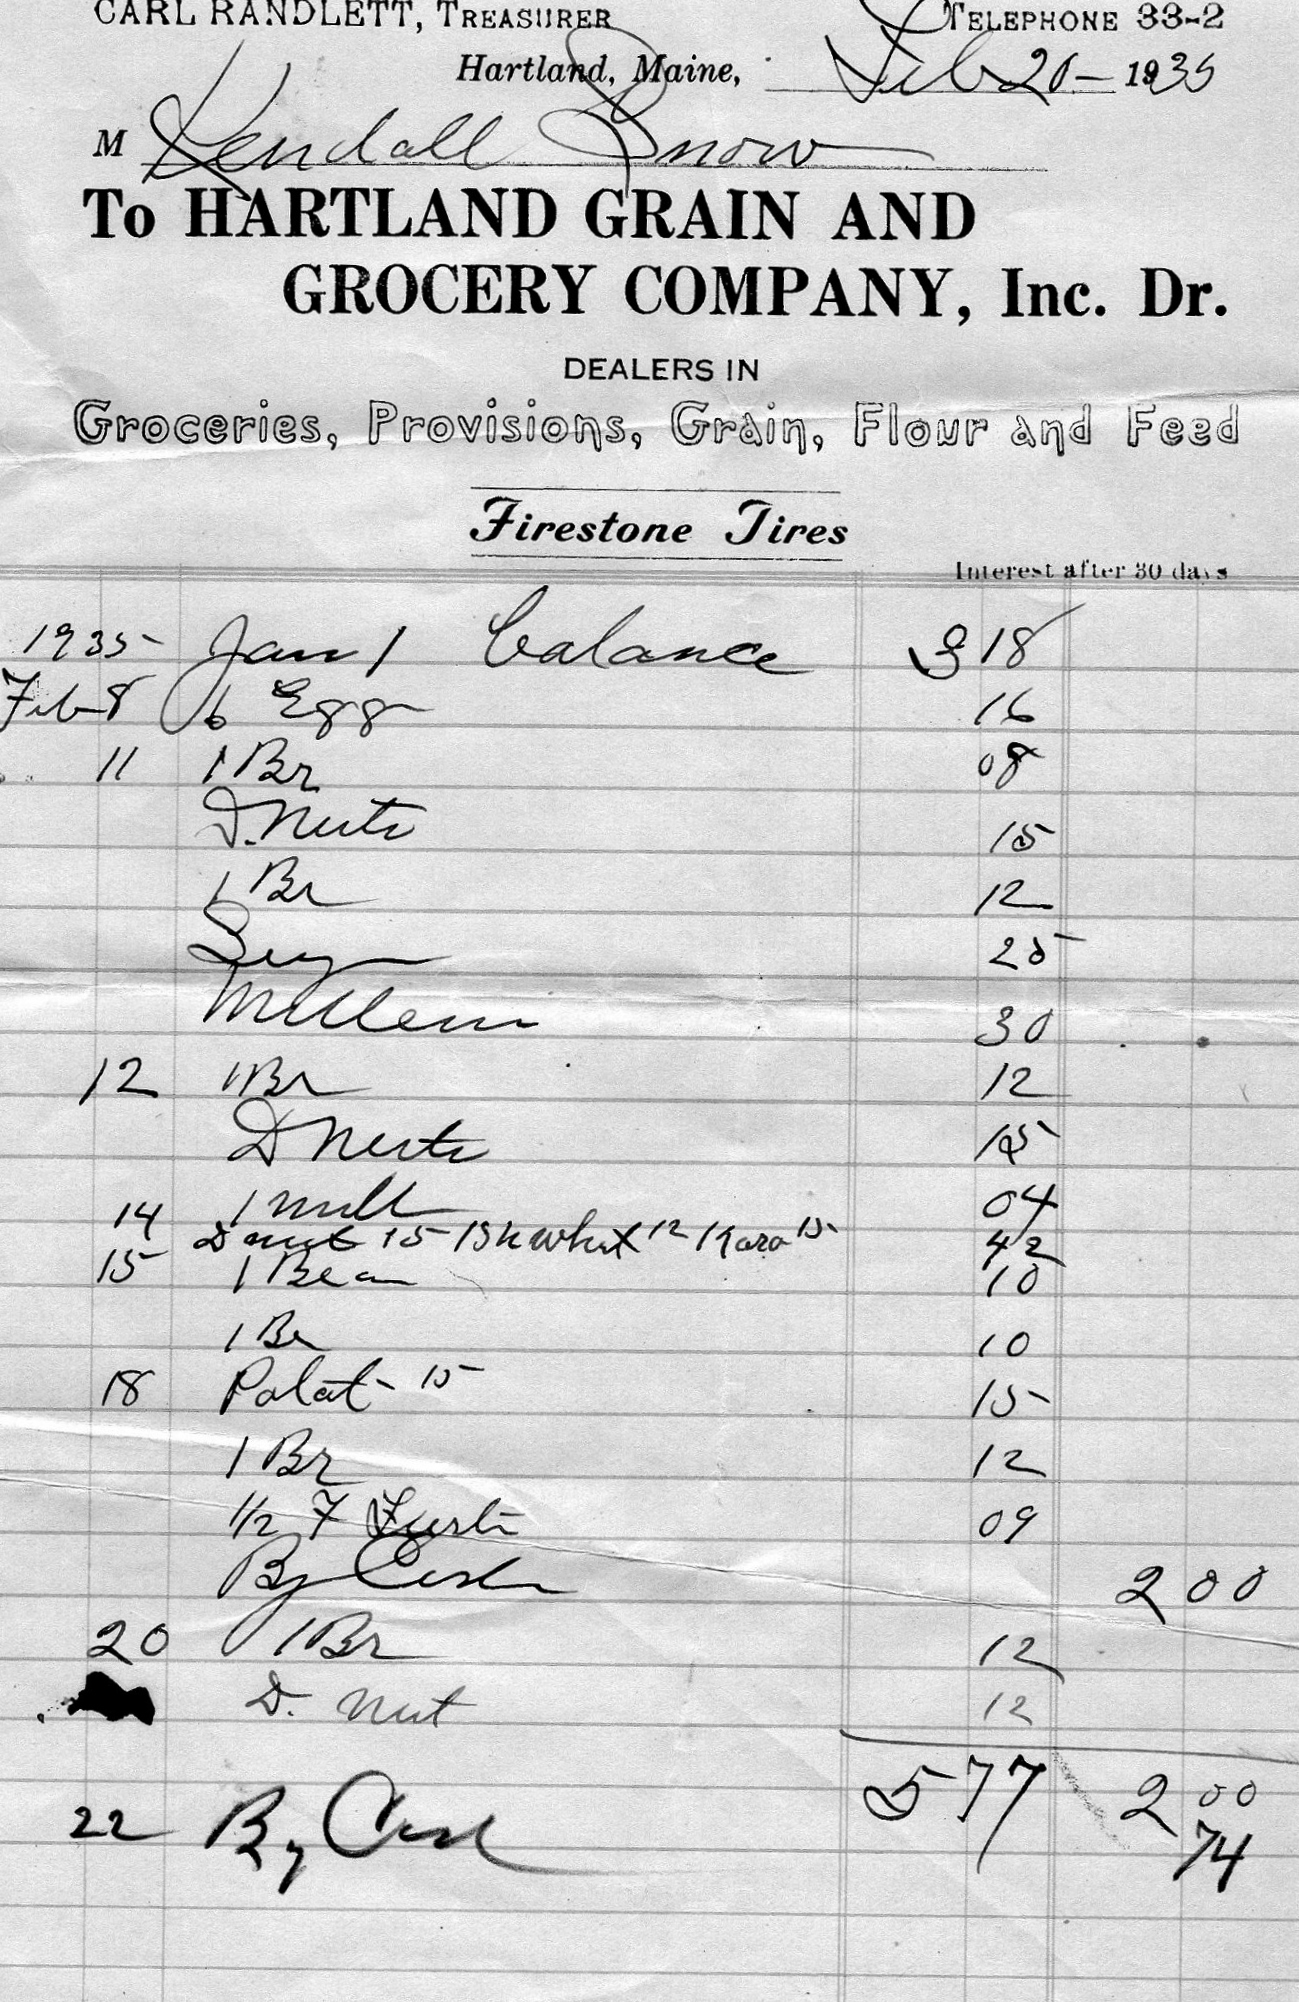 CARL RANDLETT, TREASURER TELEPHONE 33-2
Hartland, Maine, Feb 20 - 1935
M Kendall Snow
To HARTLAND GRAIN AND
GROCERY COMPANY, Inc. Dr.
DEALERS IN
Groceries, Provisions, Grain, Flour and Feed
Firestone Tires
Interest after 30 days
1935 Jan 1 balance 3 18
Feb 8 6 Eggs 16
11 1 Br 08
D. Nuts 15
1 Br 12
25
30
12 1 Br 12
D Nuts 15
1 milk 04
14 D nut 15 1 Sh Wheat 12 1 Karo 15 42
15 1 Bean 10
1 Br 10
18 Potat 15 15
1 Br 12
1/2 F 09
By Cash 2 00
20 1 Br 12
D. Nut 12
5 77 2 00
22 By Cash 74